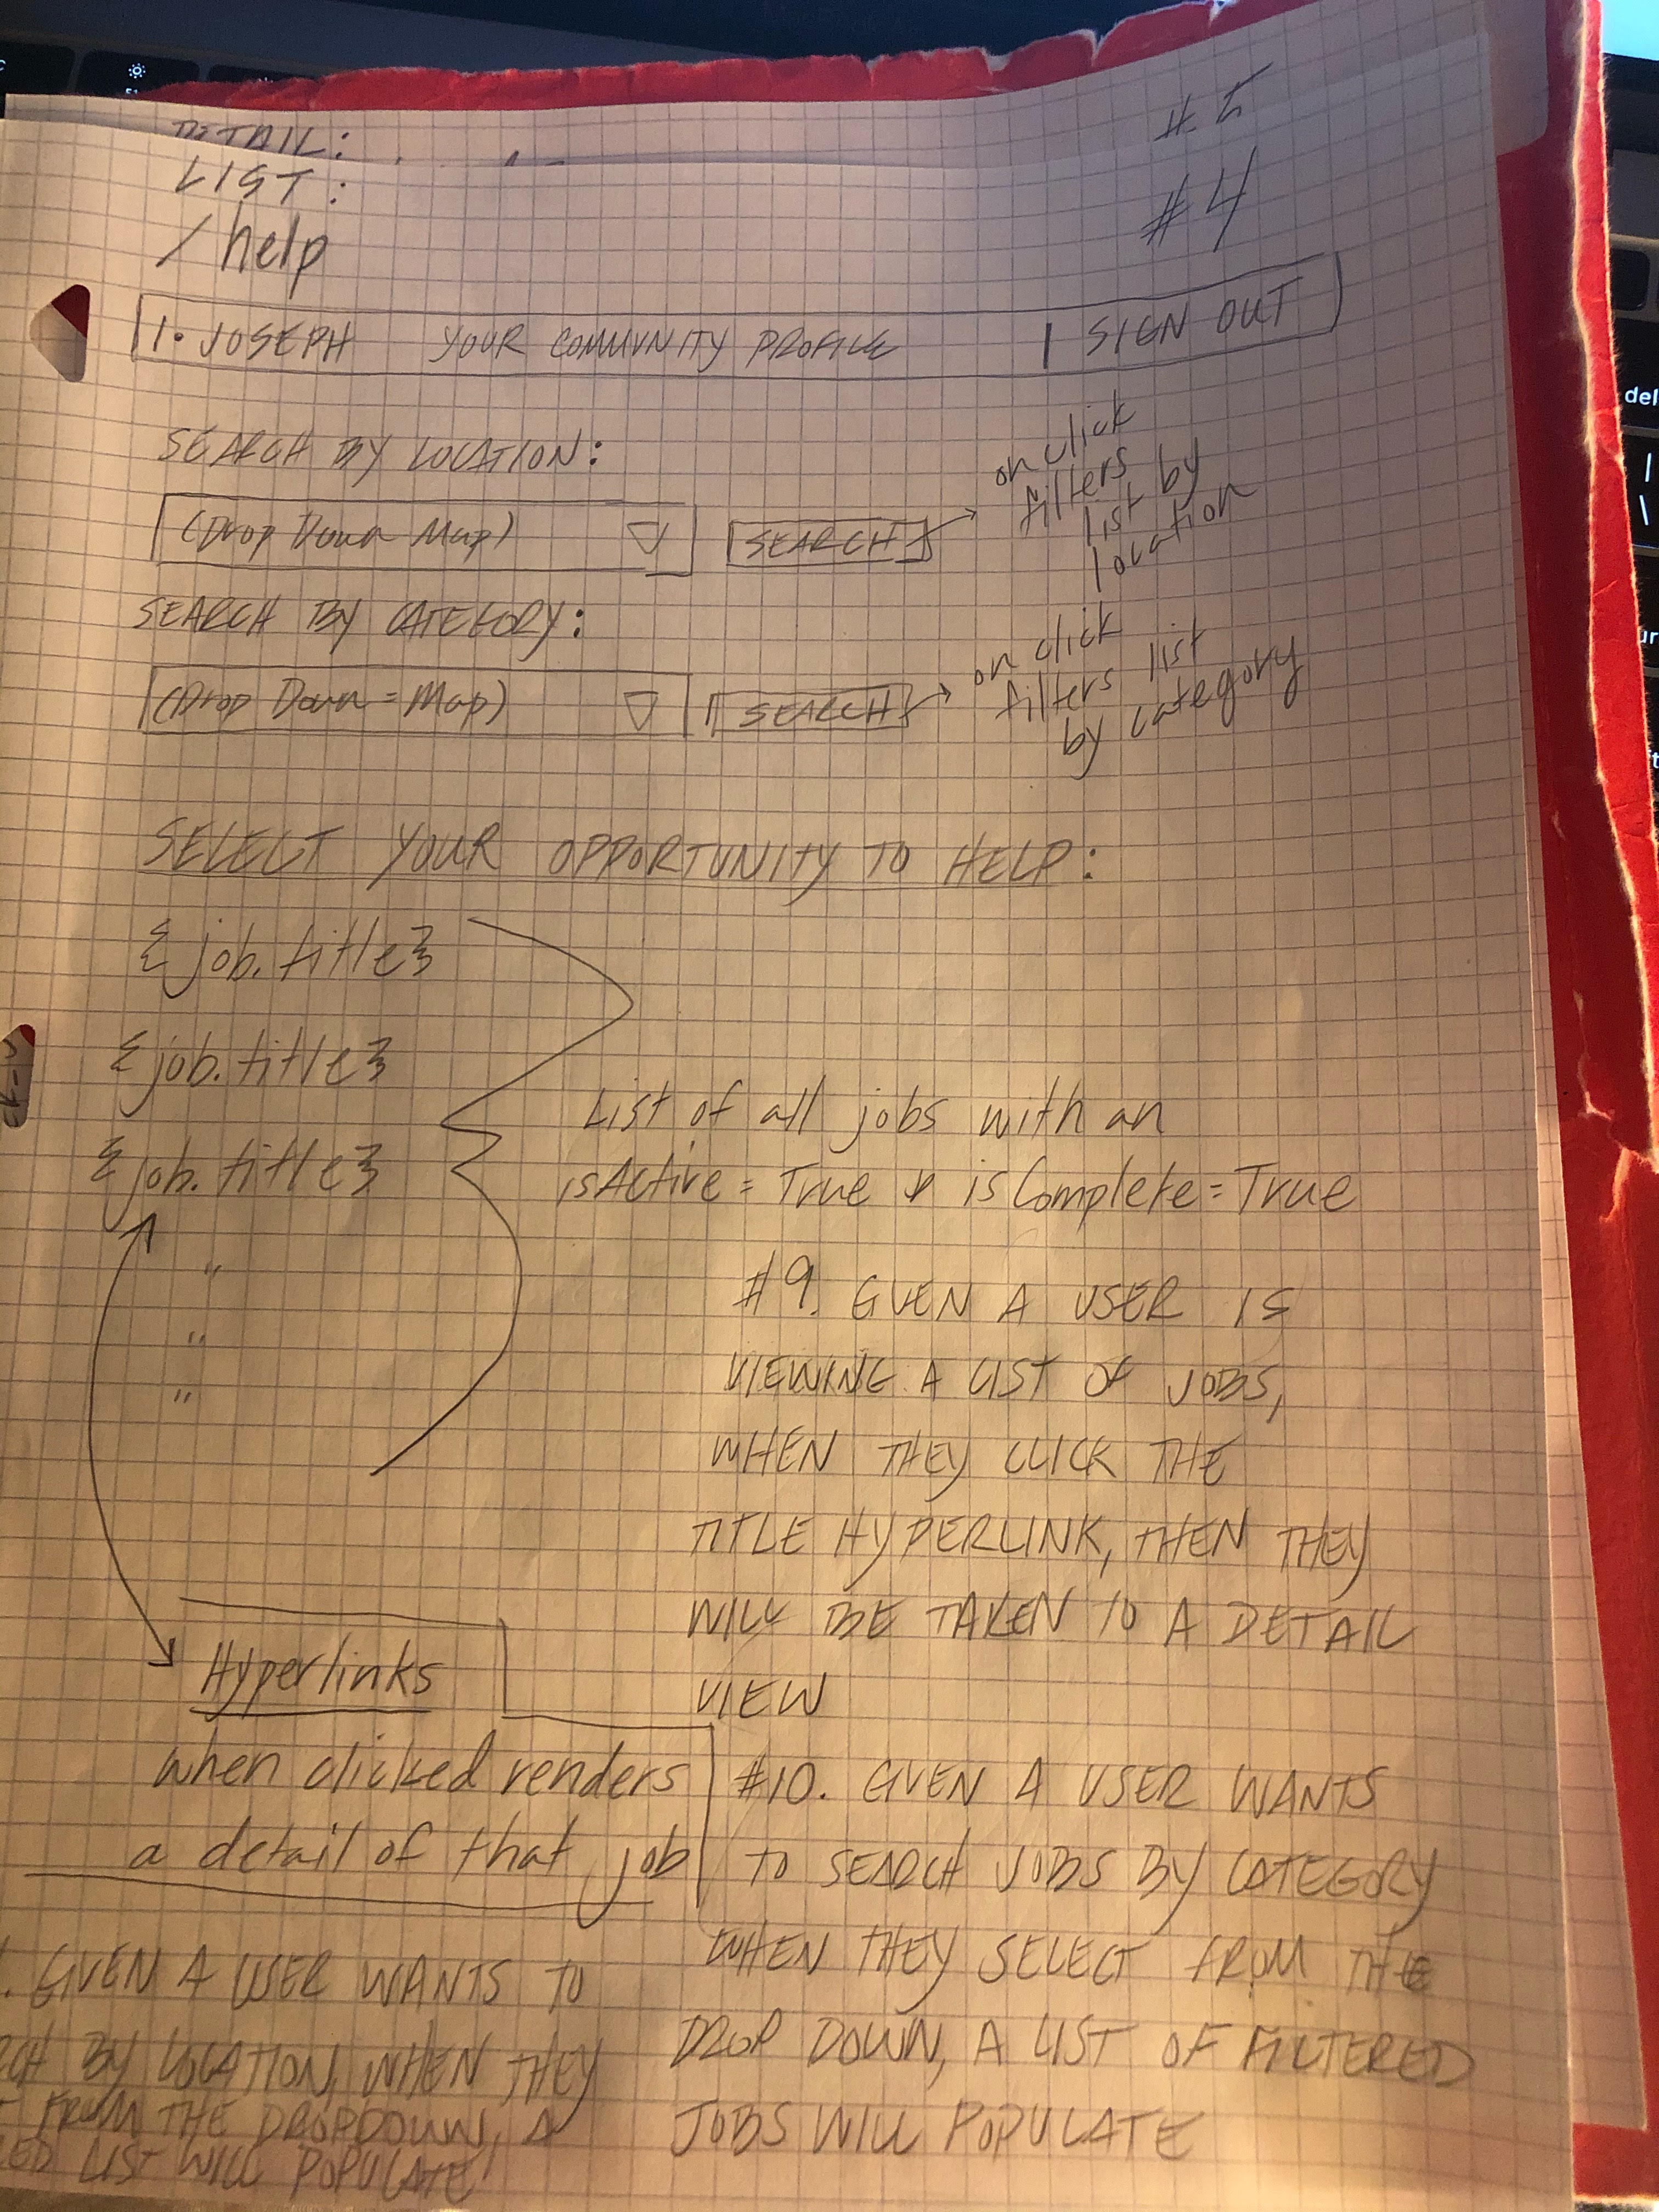 DETAIL:
# 5
LIST:
# 4
/help
1. JOSEPH YOUR COMMUNITY PROFILE | SIGN OUT
SEARCH BY LOCATION:
(Drop Down Map) SEARCH
on click
filters
list by
location
SEARCH BY CATEGORY:
(Drop Down = Map) SEARCH
on click
filters list
by category
SELECT YOUR OPPORTUNITY TO HELP:
{job.title}
{job.title}
{job.title}
"
"
"
List of all jobs with an
isActive = True & isComplete = True
#9. GIVEN A USER IS
VIEWING A LIST OF JOBS,
WHEN THEY CLICK THE
TITLE HYPERLINK, THEN THEY
WILL BE TAKEN TO A DETAIL
VIEW
Hyperlinks
when clicked renders
a detail of that job
#10. GIVEN A USER WANTS
TO SEARCH JOBS BY CATEGORY
WHEN THEY SELECT FROM THE
DROP DOWN, A LIST OF FILTERED
JOBS WILL POPULATE
. GIVEN A USER WANTS TO
RCH BY LOCATION, WHEN THEY
FROM THE DROPDOWN, A
ED LIST WILL POPULATE
del